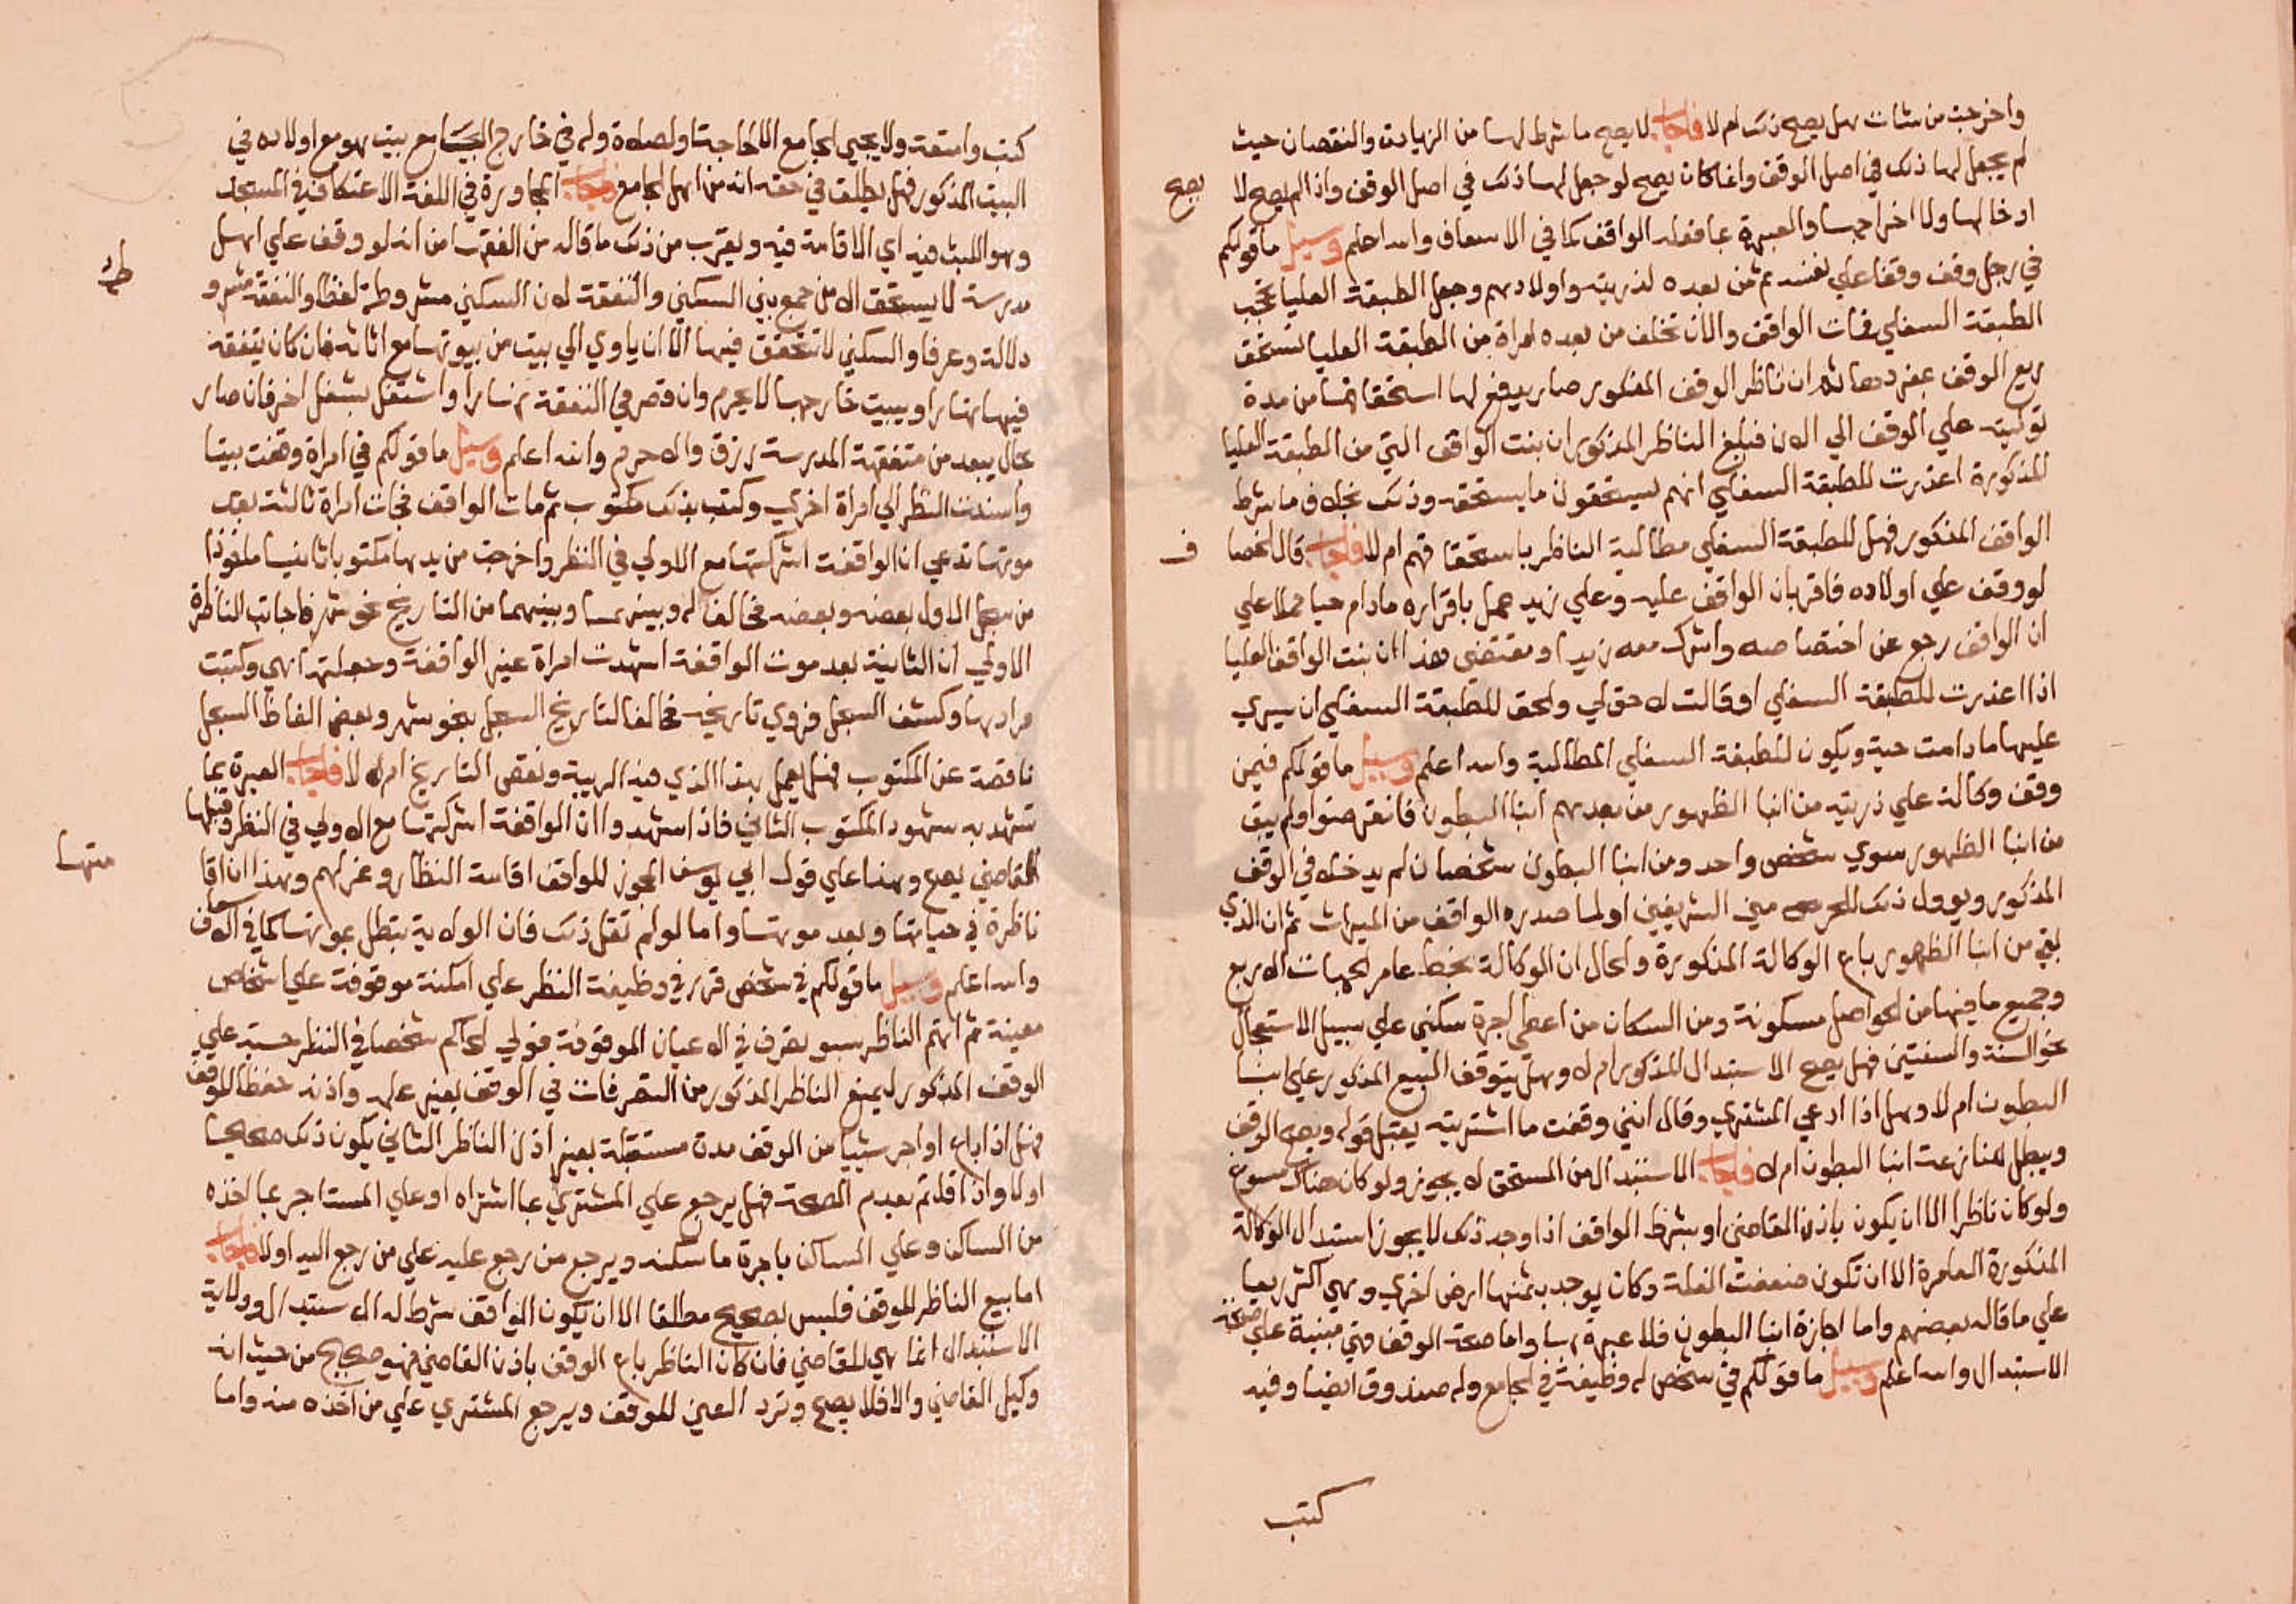 واخرجت من شات هل يصح ذلك ام لا فاجاب لا يصح ما شرط لها من الزيادة والنقصان حيث
لم يجعل لها ذلك في اصل الوقف وانما كان يصح لو جعل لها ذلك في اصل الوقف واذا لم يصح لا
يصح
ادخالها ولا اخراجها والعبرة بما فعله الواقف كما في الاسعاف والله اعلم وسيل ما قولكم
في رجل وقف وقفا علي نفسه ثم من بعده لذريته واولادهم وجعل الطبقة العليا تحجب
الطبقة السفلي فمات الواقف والان تخلف من بعده امراة من الطبقة العليا تستحق
ريع الوقف بمفردها ثم ان ناظر الوقف المذكور صار يدفع لها استحقاقها من مدة
توليته علي الوقف الي الان فبلغ الناظر المذكور ان بنت الواقف التي من الطبقة العليا
المذكورة اعذرت للطبقة السفلي انهم يستحقون ما يستحقه وذلك بخلاف ما شرط
الواقف المذكور فهل للطبقة السفلي مطالبة الناظر باستحقاقهم ام لا فاجاب قال الخصا
ف
لو وقف علي اولاده فاقر بان الواقف عليه وعلي زيد عمل باقراره مادام حيا حملا علي
ان الواقف رجع عن اختصاصه واشرك معه زيدا ومقتضي هذا ان بنت الواقف العليا
اذا اعذرت للطبقة السفلي او قالت لا حق لي والحق للطبقة السفلي ان يسري
عليها ما دامت حية ويكون للطبقة السفلي المطالبة والله اعلم وسيل ما قولكم فيمن
وقف وكالة علي ذريته من ابنا الظهور من بعدهم ابنا البطون فانقرضوا ولم يبق
من ابنا الظهور سوي شخص واحد ومن ابنا البطون شخصان لم يدخلا في الوقف
المذكور ويوول ذلك للحرمين الشريفين اولما صدره الواقف من الميراث ثم ان الذي
بقي من ابنا الظهور باع الوكالة المذكورة والحال ان الوكالة بخط عامر الجهات الاربع
وجميع ما فيها من الحواصل مسكونة ومن السكان من اعطي اجرة سكني علي سبيل الاستعجال
نحو السنة والسنتين فهل يصح الاستبدال المذكور ام لا وهل يتوقف البيع المذكور علي ابنا
البطون ام لا وهل اذا ادعي المشتري وقال انني وقفت ما اشتريته يقبل قوله ويصح الوقف
ويبطل لمنازعة ابنا البطون ام لا فاجاب الاستبدال من المستحق لا يجوز ولو كان هناك مسوغ
ولو كان ناظرا الا ان يكون باذن القاضي او بشرط الواقف اذا وجد ذلك لا يجوز استبدال الوكالة
المذكورة العامرة الا ان تكون ضعفت الغلة وكان يوجد بثمنها ارض اخري وهي اكثر ريعا
علي ما قاله بعضهم واما اجازة ابنا البطون فلا عبرة بها واما صحة الوقف فهي مبنية علي صحة
الاستبدال والله اعلم وسيل ما قولكم في شخص له وظيفة في الجامع وله صندوق ايضا وفيه
كتب
كتب وامتعة ولا يجيي الجامع الا لحاجة او لصلاة وله في خارج الجامع بيت هو مع اولاده في
البيت المذكور فهل يطلق في حقه انه من اهل الجامع فاجاب المجاورة في اللغة الاعتكاف في المسجد
وهو اللبث فيه اي الاقامة فيه ويقرب من ذلك ما قاله من الفقها من انه لو وقف علي اهل
مدرسة لا يستحق الا من جمع بين السكني والنفقة لان السكني مشروطة لفظا والنفقة مشرو
طة
دلالة وعرفا والسكني لا تتحقق فيها الا ان ياوي الي بيت من بيوتها مع اثاثه فان كان يتفقه
فيها نهارا ويبيت خارجها لا يحرم وان قصر في التفقه نهارا واشتغل بشغل اخر فان صار
بحال يبعد من متفقهة المدرسة رزق والا حرم والله اعلم وسيل ما قولكم في امراة وقفت بيتا
واسندت النظر الي امراة اخري وكتب بذلك مكتوب ثم مات الواقف فجات امراة ثالثة بعد
موتها تدعي ان الواقفة اشركتها مع الاولي في النظر واخرجت من يدها مكتوبا ثانيا ملفوذا
من سجل الاول بعضه وبعضه مخالفا له وبينهما من التاريخ نحو شهر فاجابت الناظرة
الاولي ان الثانية بعد موت الواقفة اشهدت امراة غير الواقفة وجعلتها هي وكتبت
مرادها وكشف السجل فروي تاريخه مخالفا لتاريخ السجل بنحو شهر وبعض الفاظ السجل
ناقصة عن المكتوب فهل يعمل بهذا الذي فيه الريبة ونقص التاريخ ام لا فاجاب العبرة بما
تشهد به شهود المكتوب الثاني فاذا شهدوا ان الواقفة اشركتها مع الاولي في النظر وقبلها
القاضي يصح وهذا علي قول ابي يوسف المجوز للواقف اقامة النظار وعزلهم وهذا ان اقا
متها
ناظرة في حياتها وبعد موتها واما لو لم تقل ذلك فان الولاية تبطل بموتها كما في الاسعاف
والله اعلم وسيل ما قولكم في شخص قرر في وظيفة النظر علي امكنة موقوفة علي اشخاص
معينة ثم اتهم الناظر بسو تصرف في الاعيان الموقوفة فولي الحاكم شخصا في النظر حسبة علي
الوقف المذكور ليمنع الناظر المذكور من التصرفات في الوقف بغير علمه واذنه حفظا للوقف
فهل اذا باع او اجر شييا من الوقف مدة مستقبلة بغير اذن الناظر الثاني يكون ذلك صحيحا
اولا واذا قلتم بعدم الصحة فهل يرجع علي المشتري بما اشتراه او علي المستاجر بما اخذه
من الساكن وعلي الساكن باجرة ما سكنه ويرجع من رجع عليه علي من رجع اليه اولا فاجاب
اما بيع الناظر للوقف فليس بصحيح مطلقا الا ان يكون الواقف شرط له الاستبدال وولاية
الاستبدال انما هي للقاضي فان كان الناظر باع الوقف باذن القاضي فهو صحيح من حيث انه
وكيل القاضي والا فلا يصح وترد العين للوقف ويرجع المشتري علي من اخذه منه واما